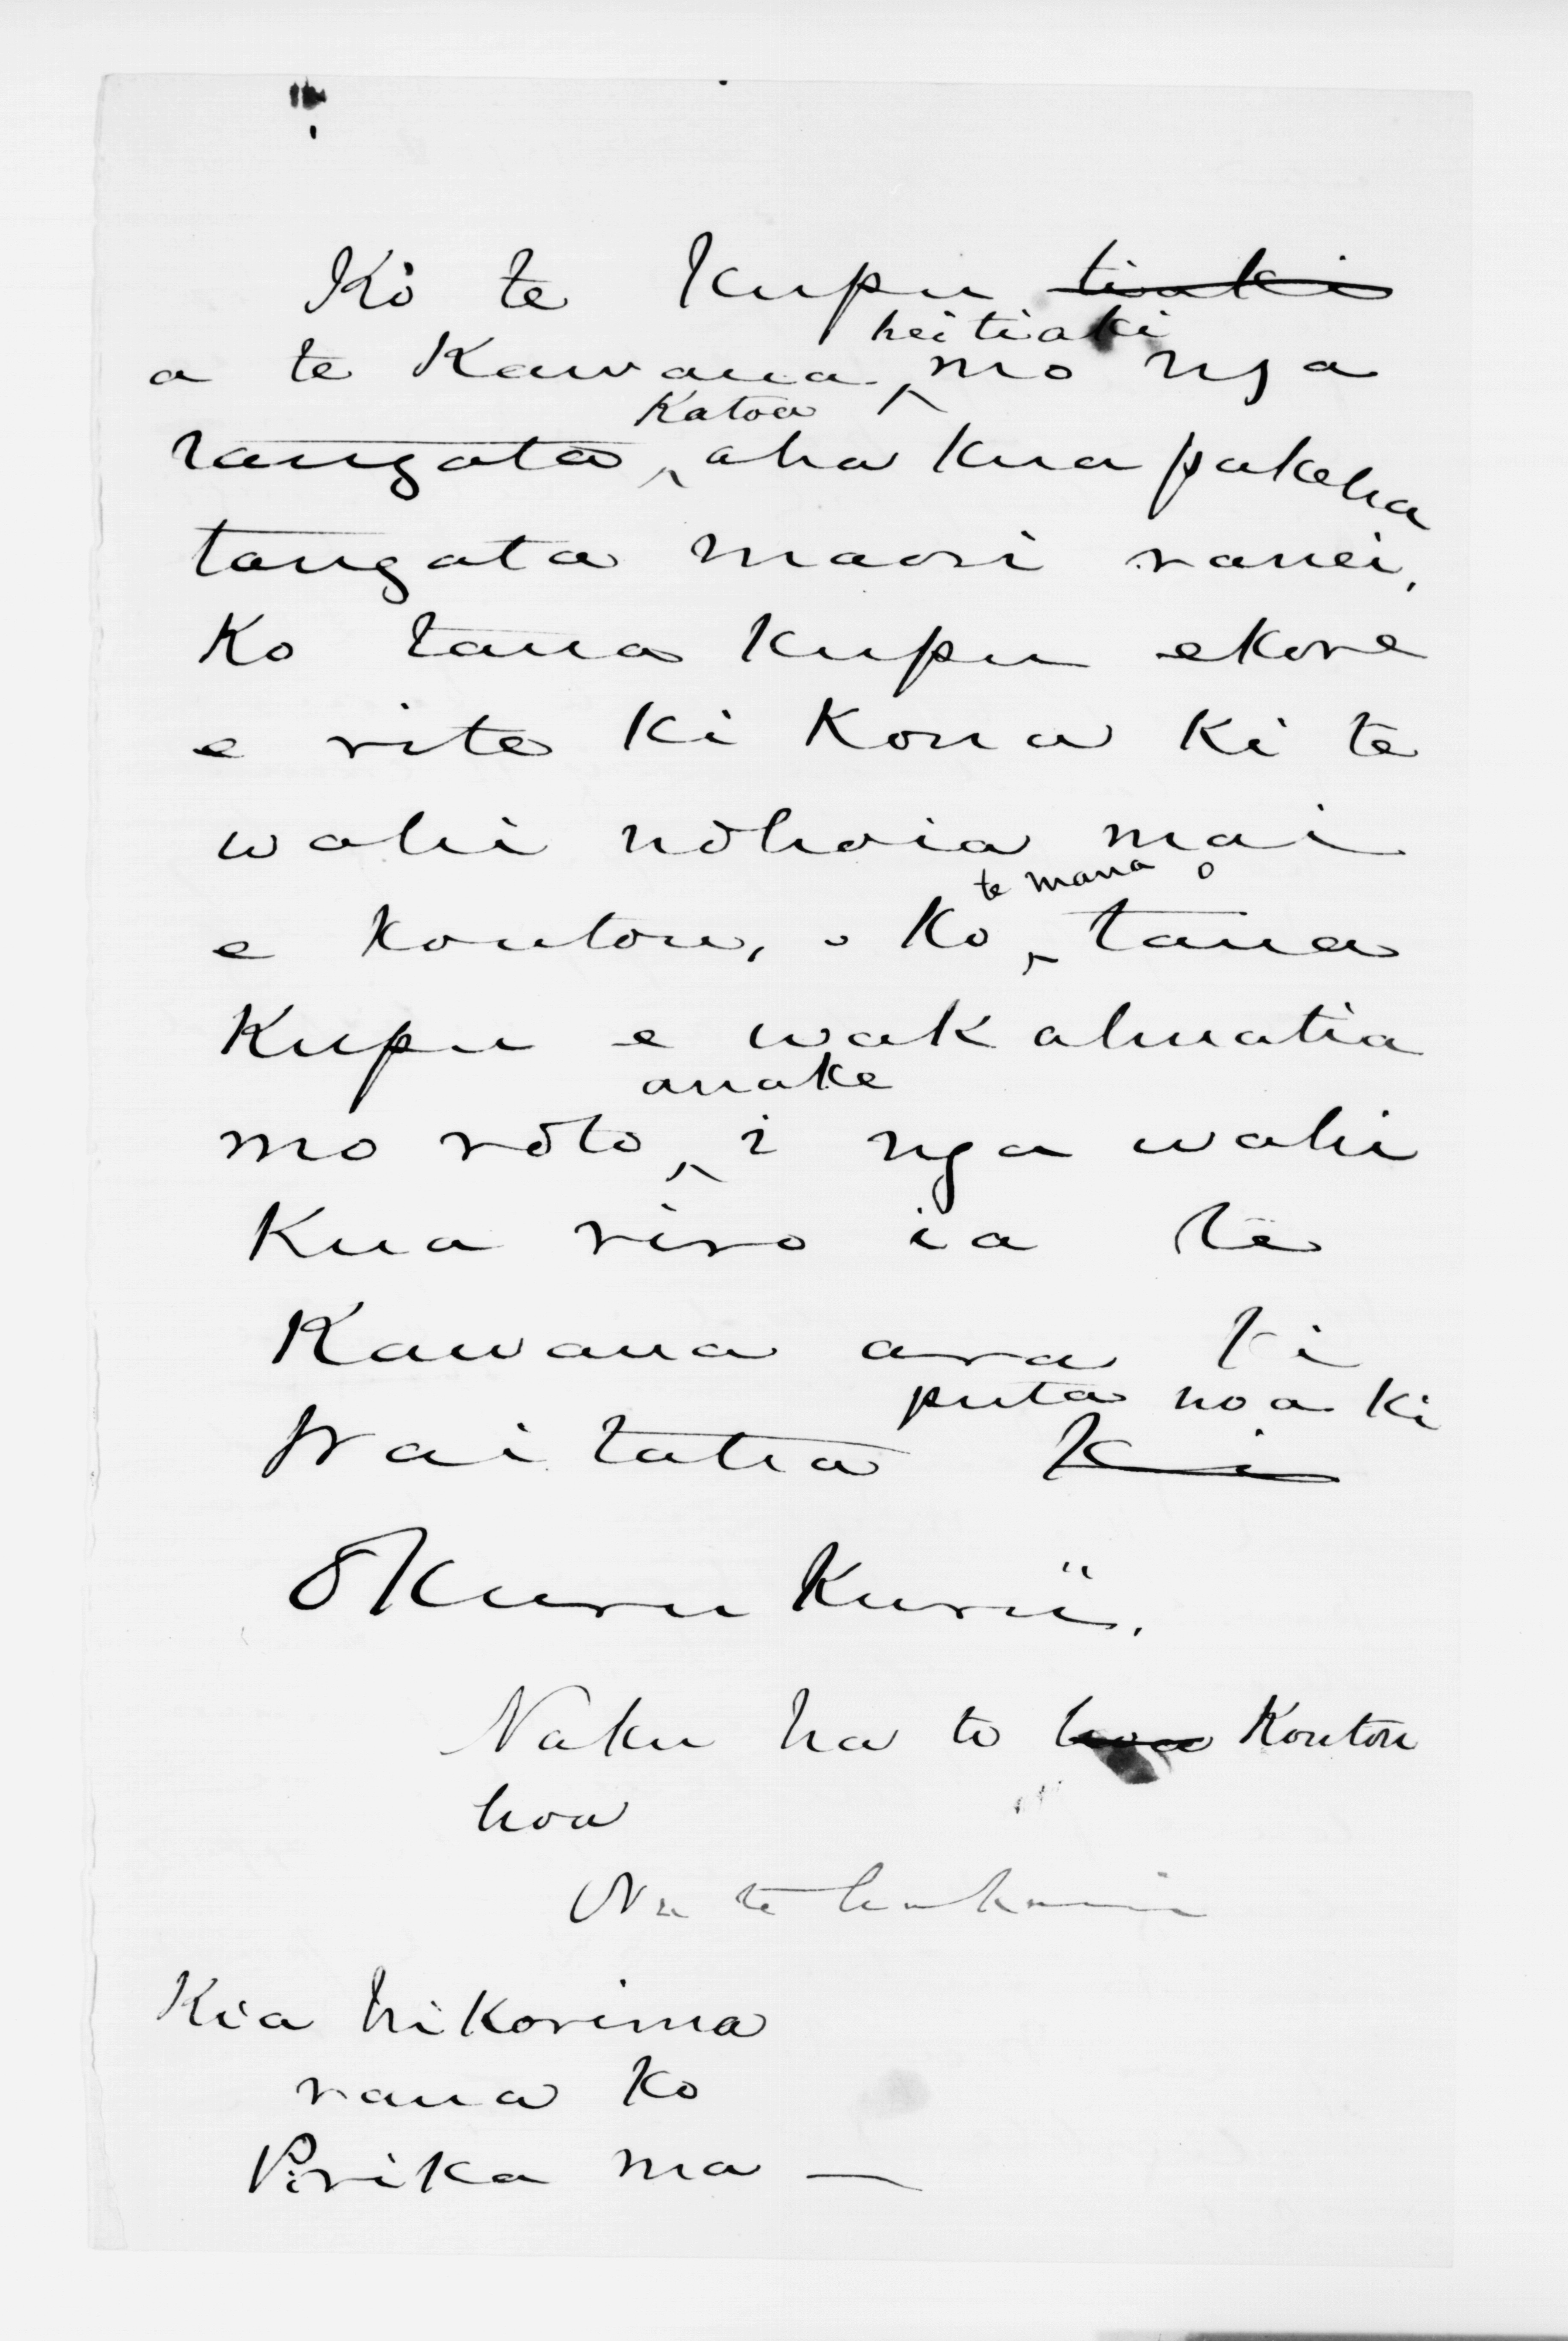 Ko te Kupu tiaki
hei tiaki
a te Kawana mo nga
Katoa
tangata, aha kua pakeha
tangata maori ranei,
Ko tana Kupu ekore
e rite ki Kona ki te
wahi nohoia mai
te mana o
e Koutou, Ko tana
Kupu e wakahuatia
anake
mo roto i nga wahi
Kua riro ia te
Kawana ara ki
puta noa ki
Waitaha ki
OKurukuru.
Naku ha to hoa Koutou
hoa
Na te
Kia hikorima
raua ko
Pirika ma —